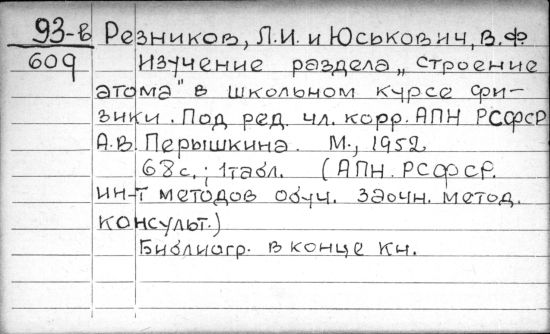 93-в Резников, Л.И. и Юськович, В.Ф
609 Изучение раздела „строение
атома" в школьном курсе фи-
зики. Под ред. чл. корр. АПН РСФСР
А.В. Перышкина. М., 1952
68 с.; 1 табл. (АПН. РСФСР.
ин-т методов обуч. Заочн. метод.
консульт.)
Библиогр. в конце кн.